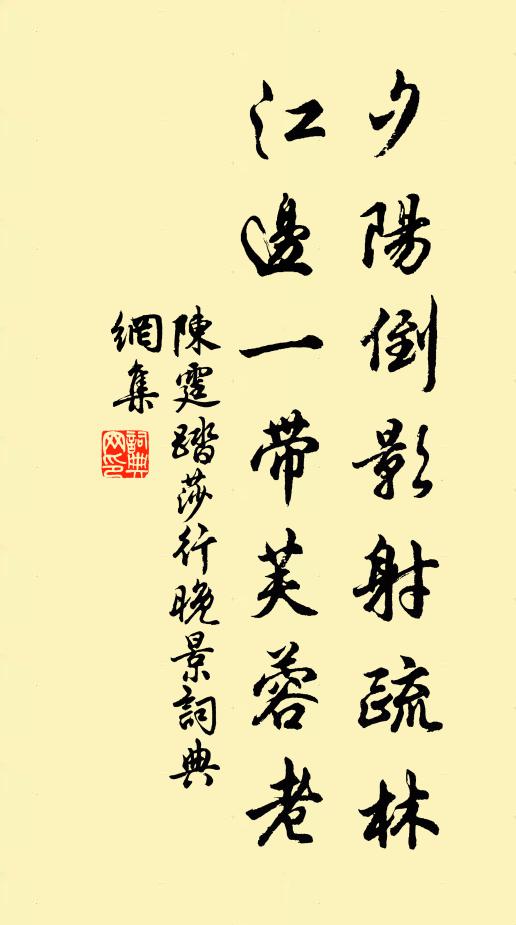 夕陽倒影射疏林
江邊一帶芙蓉老
陳霆踏莎行晚景詞典
網集
詞典網印